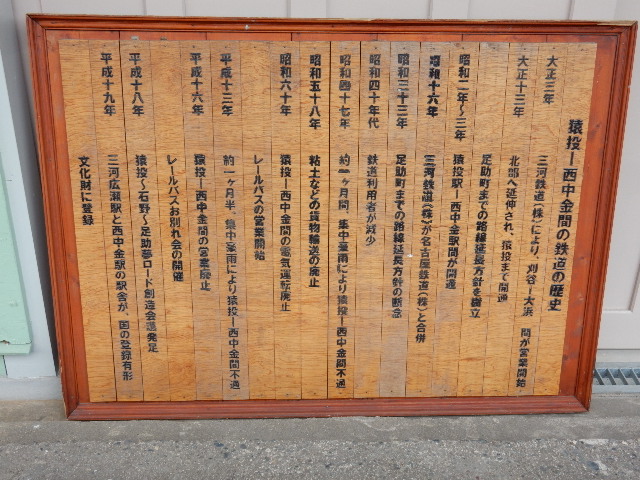 猿投ー西中金間の鉄道の歴史
大正三年 三河鉄道(株)により、刈谷ー大浜 間が営業開始
大正十三年 北部へ延伸され、猿投まで開通
足助町までの路線延長方針を樹立
昭和二年～三年 猿投駅ー西中金駅間が開通
昭和十六年 三河鉄道(株)が名古屋鉄道(株)と合併
昭和三十三年 足助町までの路線延長方針の断念
昭和四十年代 鉄道利用者が減少
昭和四十七年 約一ヶ月間、集中豪雨により猿投ー西中金間不通
昭和五十八年 粘土などの貨物輸送の廃止
昭和六十年 猿投ー西中金間の電気運転廃止
レールバスの営業開始
平成十三年 約一ヶ月半、集中豪雨により猿投ー西中金間不通
平成十六年 猿投ー西中金間の営業廃止
レールバスお別れ会の開催
平成十八年 猿投～石野～足助夢ロード創造会議発足
平成十九年 三河広瀬駅と西中金駅の駅舎が、国の登録有形
文化財に登録